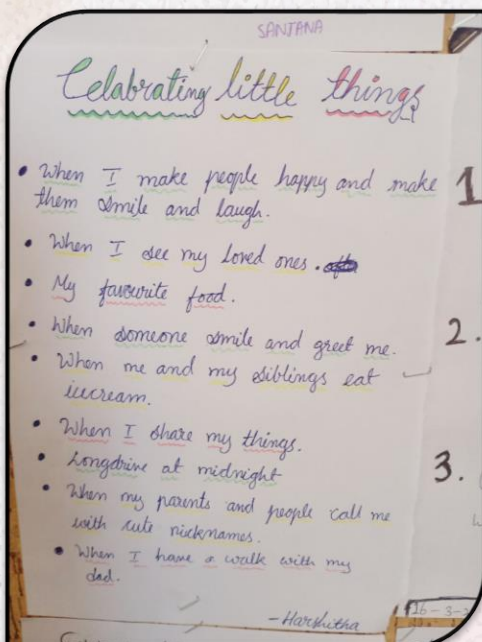 SANJANA
Celabrating little things
• When I make people happy and make
them smile and laugh.
• When I see my loved ones.
• My favourite food.
• When someone smile and greet me.
• When me and my siblings eat
icecream.
• When I share my things.
• Longdrive at midnight
• When my parents and people call me
with cute nicknames.
• When I have a walk with my
dad.
-Harshitha
1
2.
3.